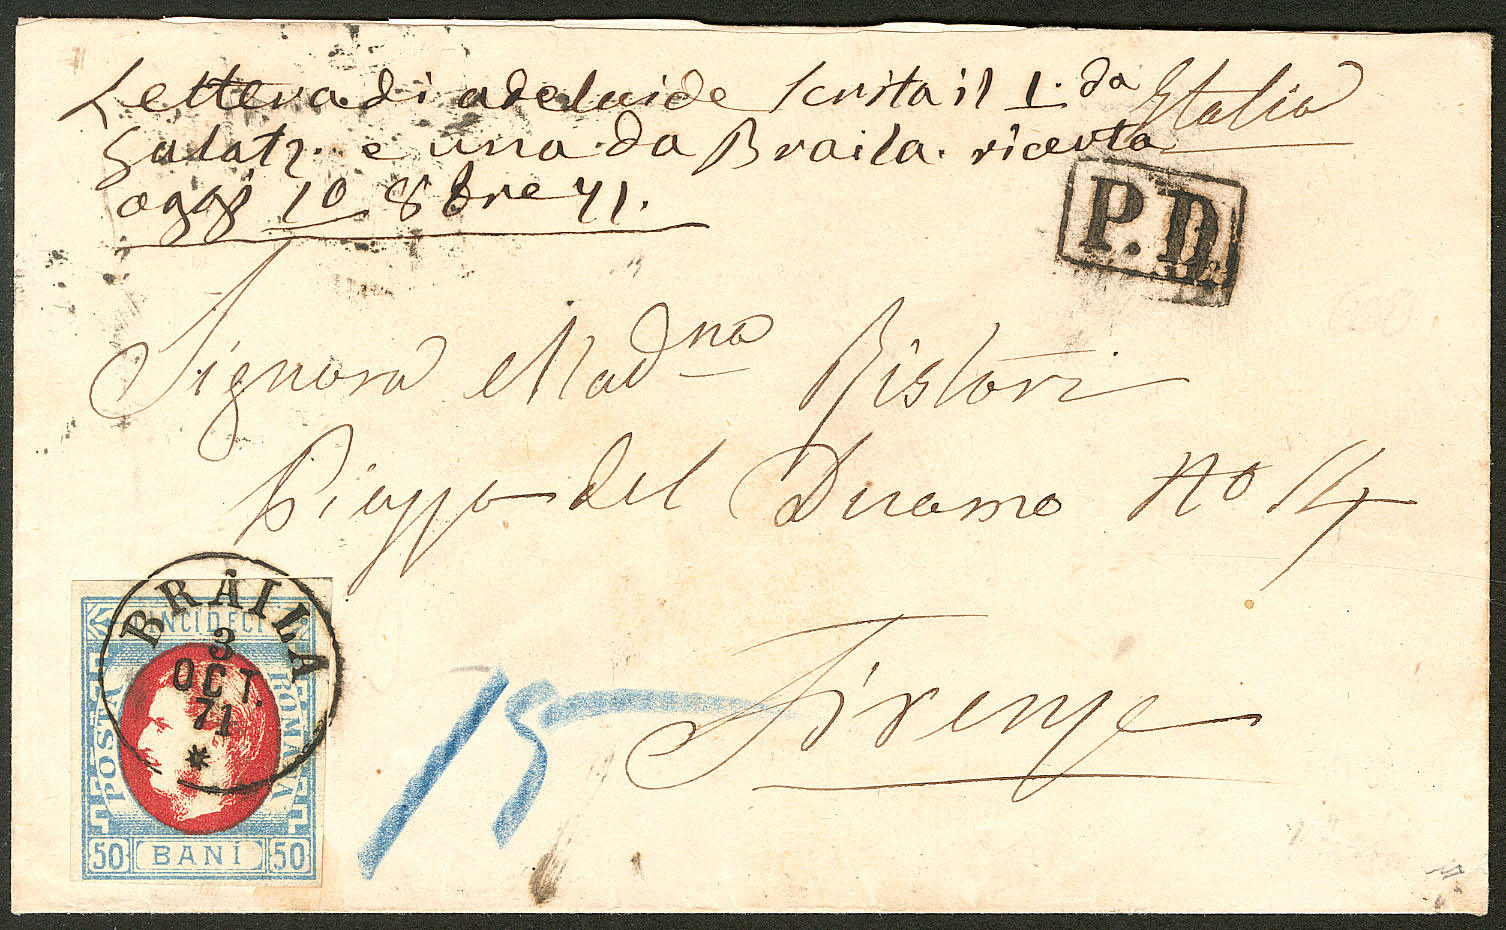 Lettera di adelaide Scritta il 1. da
Galatz. e una da Braila. ricevta
oggi 10 8bre 71.
Italia
P.D.
Signora Madna Ristori
Piazza del Duomo No 14
Firenze
BRĂILA
3
OCT.
71
*
CINCI DECI
POSTA
ROMANA
50 BANI 50
15